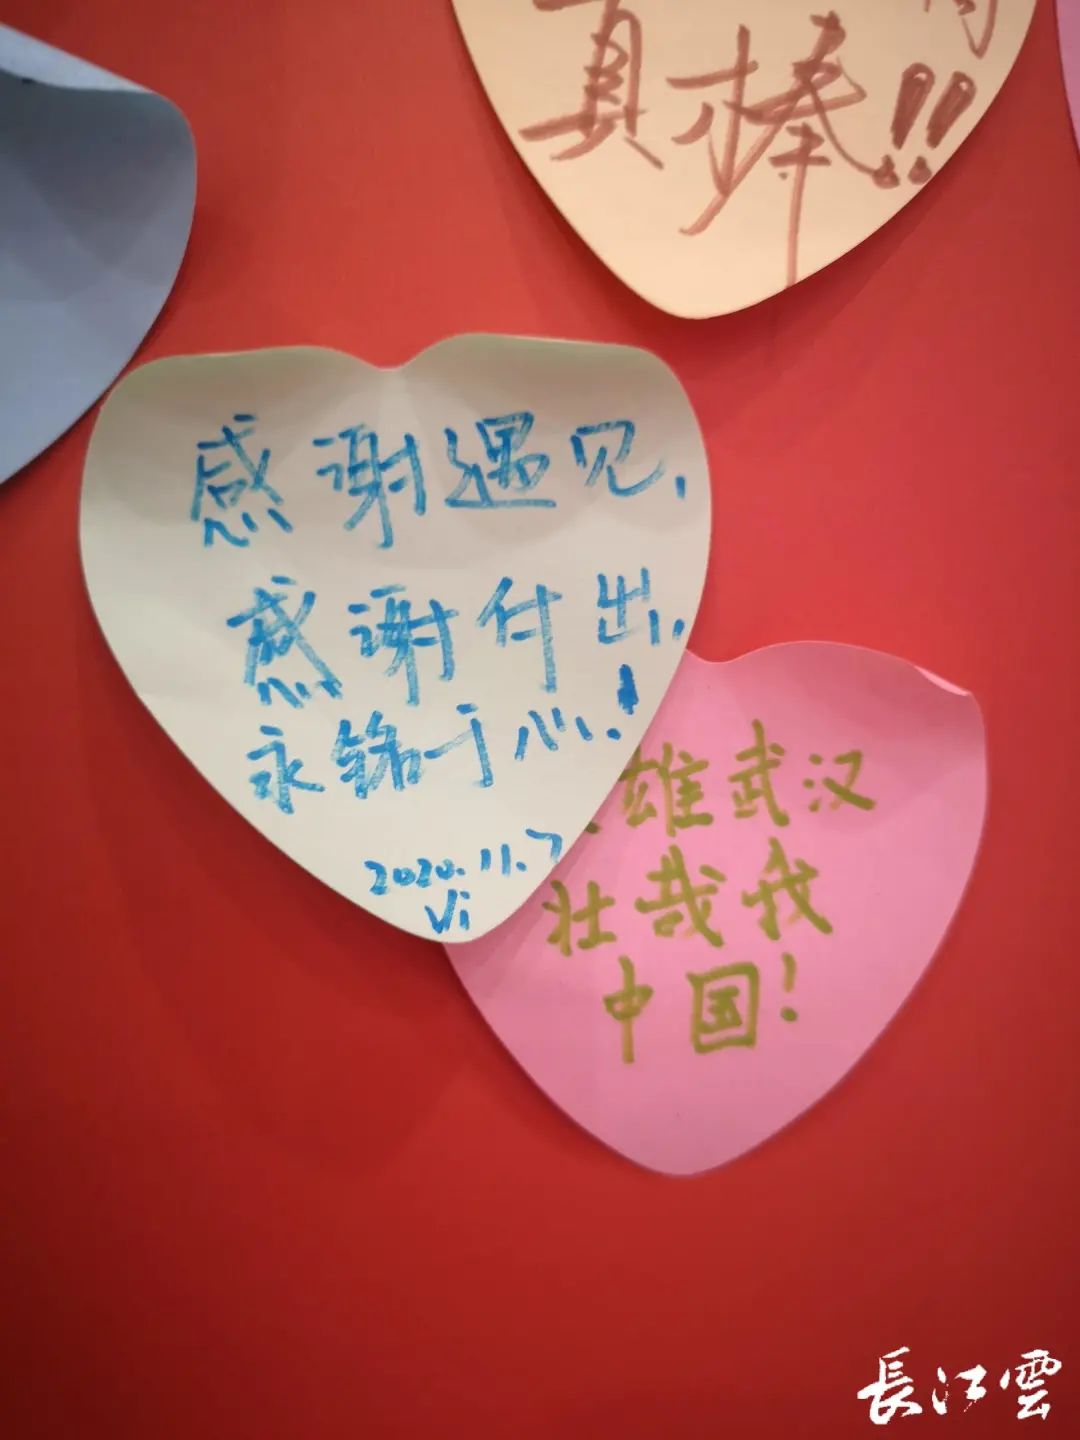 真棒!!
感谢遇见,
感谢付出,
永铭于心!
2020.11.7
Vi
雄武汉
壮哉我
中国!
長江雲